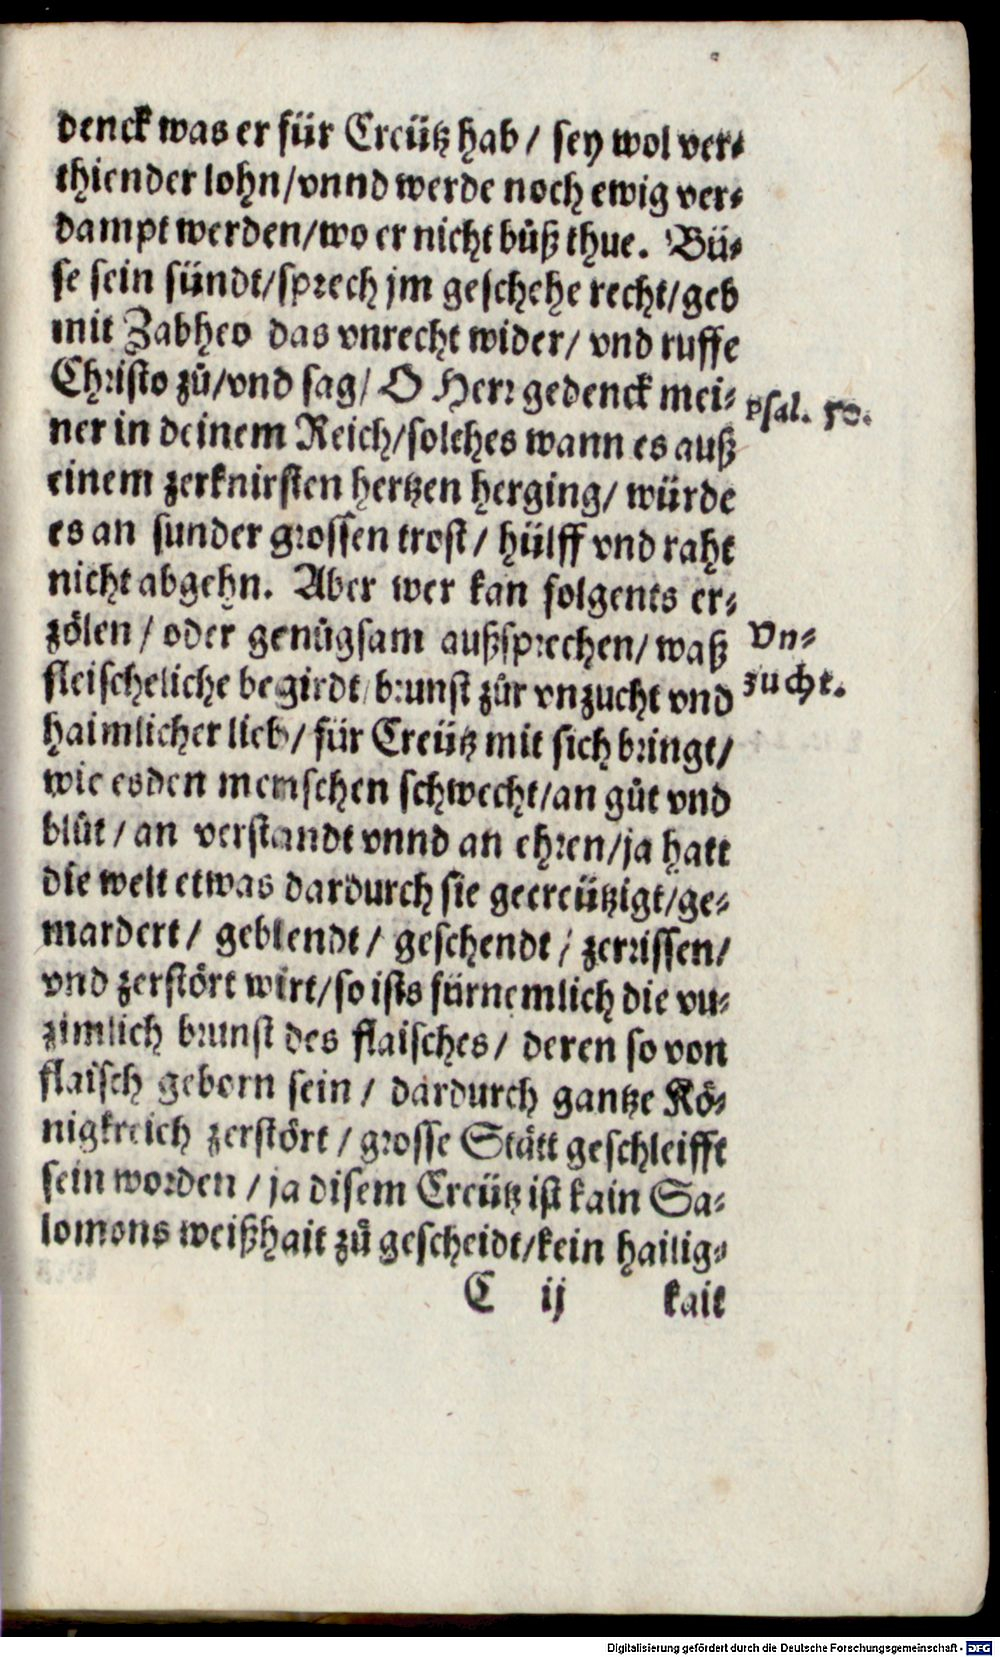 denck was er für Creütz hab / sey wol ver⸗
thiender lohn/vnnd werde noch ewig ver⸗
dampt werden/wo er nicht bůß thue. Bü⸗
se sein sündt/sprech jm geschehe recht/geb
mit Zabheo das vnrecht wider/ vnd ruffe
Christo zů/vnd sag/ O Herr gedenck mei⸗
psal. 50.
ner in deinem Reich/solches wann es auß
einem zerknirsten hertzen herging/ würde
es an sunder grossen trost / hülff vnd raht
nicht abgehn. Aber wer kan folgents er⸗
zölen / oder genůgsam außsprechen/ waß
Vn⸗
zucht.
fleischeliche begirdt/ brunst zůr vnzucht vnd
haimlicher lieb / für Creütz mit sich bringt/
wie es den memschen schwecht/an gůt vnd
blůt / an verstandt vnnd an ehren/ja hatt
die welt etwas dardurch sie gecreützigt/ge⸗
mardert / geblendt / geschendt / zerrissen/
vnd zerstört wirt/so ists fürnemlich die vu⸗
zimlich brunst des flaisches/ deren so von
flaisch geborn sein / dardurch gantze Kö⸗
nigkreich zerstört / grosse Stätt geschleifft
sein worden / ja disem Creütz ist kain Sa⸗
lomons weißhait zů gescheidt/kein hailig⸗
C ij kait
Digitalisierung gefördert durch die Deutsche Forschungsgemeinschaft - DFG